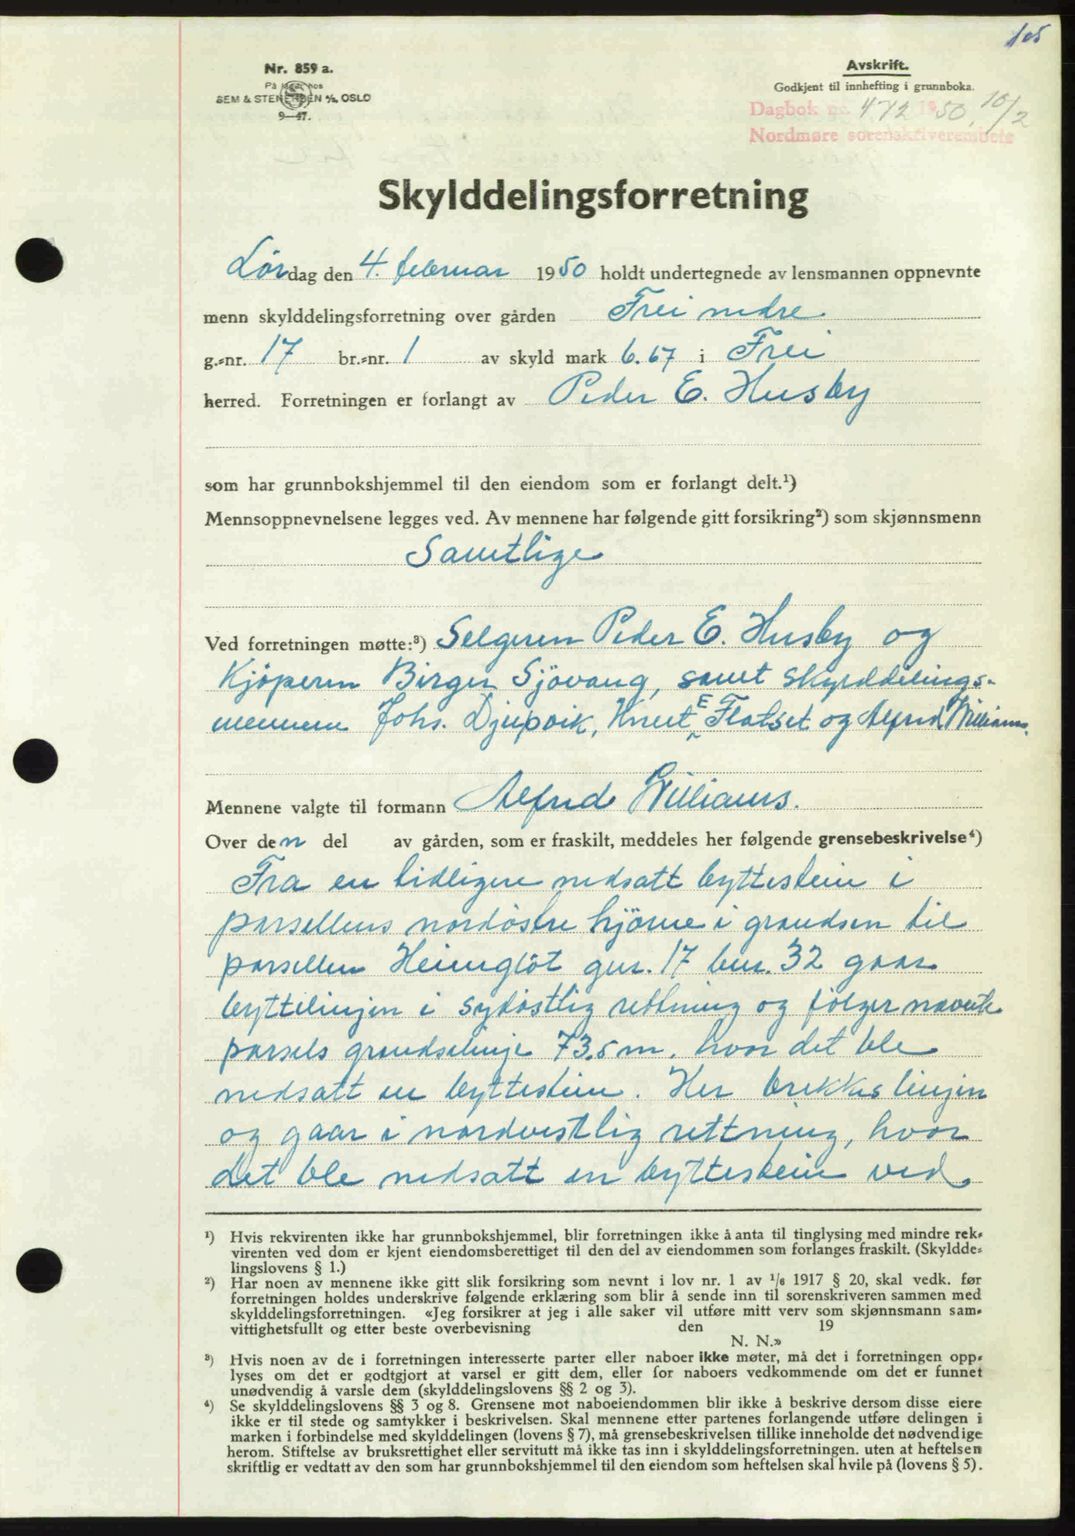 105
Nr. 859 a.
På lager hos
SEM & STENERSEN A/S, OSLO
9—47.
Avskrift.
Godkjent til innhefting i grunnboka.
Dagbok nr. 472 1950, 10/2
Nordmøre sorenskriverembete
Skylddelingsforretning
Lørdag den 4. februar 1950 holdt undertegnede av lensmannen oppnevnte
menn skylddelingsforretning over gården Frei nedre
g.-nr. 17 br.-nr. 1 av skyld mark 6.67 i Frei
herred. Forretningen er forlangt av Peder E. Husby
som har grunnbokshjemmel til den eiendom som er forlangt delt.¹)
Mennsoppnevnelsene legges ved. Av mennene har følgende gitt forsikring²) som skjønnsmenn
Samtlige
Ved forretningen møtte:³) Selgeren Peder E. Husby og
Kjöperen Birger Sjövang, samt skylddelings-
mennene Johs. Djupvik, Knut E Flatset og Alfred Williams.
Mennene valgte til formann Alfred Williams.
Over den del av gården, som er fraskilt, meddeles her følgende grensebeskrivelse⁴)
Fra en tidligere nedsatt byttestein i
parsellens nordöstre hjörne i grændsen til
parsellen Heimglöt gnr. 17 bnr. 32 gaar
byttelinjen i sydöstlig rettning og fölger nævnte
parsels grændselinje 73.5 m. hvor det ble
nedsatt en byttestein. Her brekkes linjen
og gaar i nordvestlig rettning, hvor
det ble nedsatt en byttestein ved
¹) Hvis rekvirenten ikke har grunnbokshjemmel, blir forretningen ikke å anta til tinglysing med mindre rek-
virenten ved dom er kjent eiendomsberettiget til den del av eiendommen som forlanges fraskilt. (Skyldde-
lingslovens § 1.)
²) Har noen av mennene ikke gitt slik forsikring som nevnt i lov nr. 1 av ¹/₆ 1917 § 20, skal vedk. før
forretningen holdes underskrive følgende erklæring som blir å sende inn til sorenskriveren sammen med
skylddelingsforretningen. «Jeg forsikrer at jeg i alle saker vil utføre mitt verv som skjønnsmann sam-
vittighetsfullt og etter beste overbevisning den 19
N. N.»
³) Hvis noen av de i forretningen interesserte parter eller naboer ikke møter, må det i forretningen opp-
lyses om det er godtgjort at varsel er gitt dem, eller for naboers vedkommende om det er funnet
unødvendig å varsle dem (skylddelingslovens §§ 2 og 3).
⁴) Se skylddelingslovens §§ 3 og 8. Grensene mot naboeiendommen blir ikke å beskrive dersom disse eiere
ikke er til stede og samtykker i beskrivelsen. Skal mennene etter partenes forlangende utføre delingen i
marken i forbindelse med skylddelingen (lovens § 7), må grensebeskrivelsen tillike inneholde det nødvendige
herom. Stiftelse av bruksrettighet eller servitutt må ikke tas inn i skylddelingsforretningen. uten at heftelsen
skriftlig er vedtatt av den som har grunnbokshjemmel til den eiendom som heftelsen skal hvile på (lovens § 5).